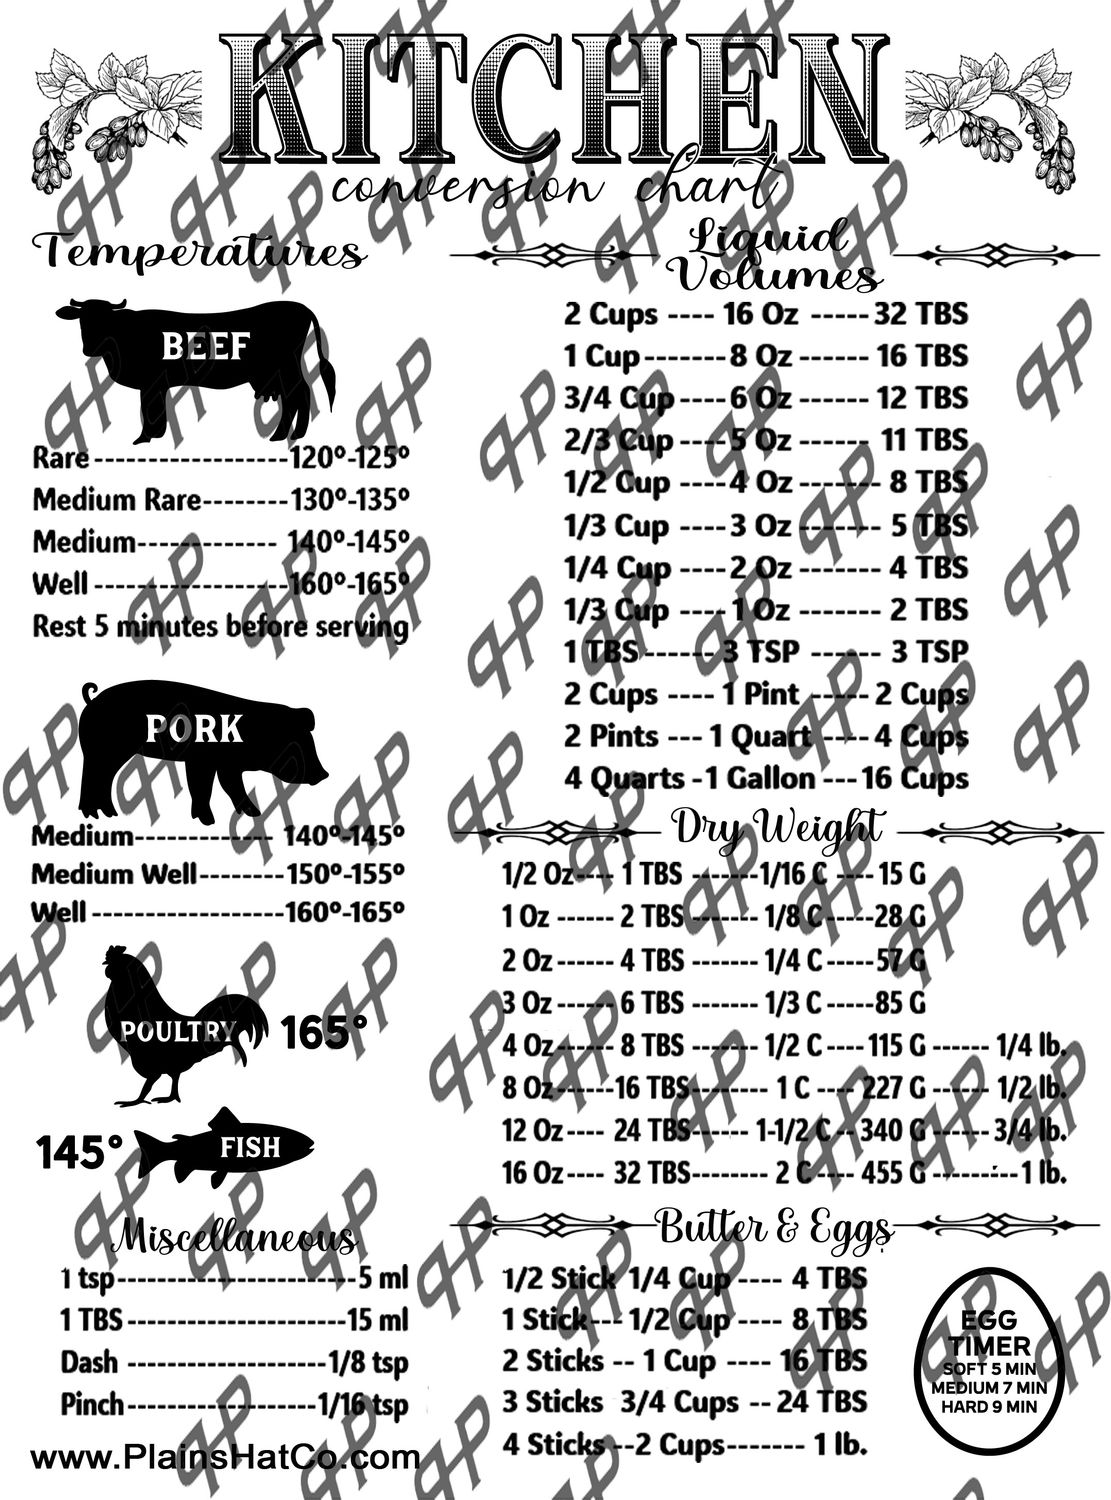 KITCHEN
conversion chart
Temperatures
BEEF
Rare------------------120º-125º
Medium Rare--------130º-135º
Medium------------- 140º-145º
Well ------------------160º-165º
Rest 5 minutes before serving
PORK
Medium------------- 140º-145º
Medium Well--------150º-155º
Well ------------------160º-165º
POULTRY 165°
145° FISH
Miscellaneous
1 tsp----------------------5 ml
1 TBS--------------------15 ml
Dash ------------------1/8 tsp
Pinch------------------1/16 tsp
www.PlainsHatCo.com
Liquid
Volumes
2 Cups ---- 16 Oz -----32 TBS
1 Cup-------8 Oz ------ 16 TBS
3/4 Cup----6 Oz ------ 12 TBS
2/3 Cup ----5 Oz ------ 11 TBS
1/2 Cup ----4 Oz ------- 8 TBS
1/3 Cup ----3 Oz ------- 5 TBS
1/4 Cup ----2 Oz ------- 4 TBS
1/3 Cup ----1 Oz ------- 2 TBS
1 TBS------ 3 TSP ------ 3 TSP
2 Cups ---- 1 Pint ----- 2 Cups
2 Pints --- 1 Quart ----4 Cups
4 Quarts -1 Gallon ---16 Cups
Dry Weight
1/2 Oz---- 1 TBS -------1/16 C ----15 G
1 Oz ------ 2 TBS------- 1/8 C-----28 G
2 Oz------ 4 TBS ------- 1/4 C-----57 G
3 Oz------ 6 TBS ------- 1/3 C-----85 G
4 Oz------ 8 TBS ------- 1/2 C----115 G ------ 1/4 lb.
8 Oz------16 TBS-------- 1 C ---- 227 G ------ 1/2 lb.
12 Oz---- 24 TBS------ 1-1/2 C--340 G ------ 3/4 lb.
16 Oz---- 32 TBS-------- 2 C---- 455 G ---------1 lb.
Butter & Eggs
1/2 Stick 1/4 Cup ---- 4 TBS
1 Stick--- 1/2 Cup ---- 8 TBS
2 Sticks -- 1 Cup ---- 16 TBS
3 Sticks 3/4 Cups --24 TBS
4 Sticks--2 Cups------- 1 lb.
EGG
TIMER
SOFT 5 MIN
MEDIUM 7 MIN
HARD 9 MIN